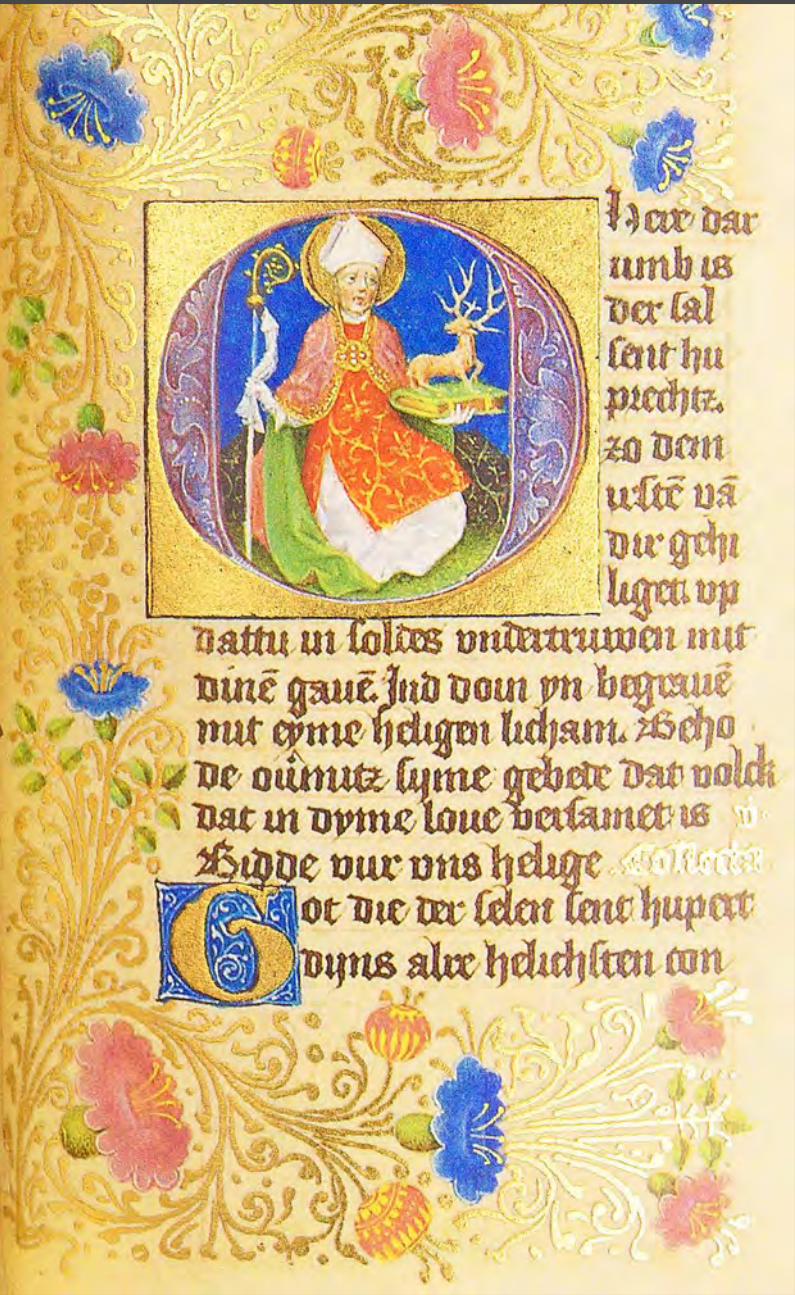 O here dar
umb is
der sal
sent hu
prechtz.
zo dem
ustē vā
dir gehi
liget. up
dattu in soldes vndertruwen mit
dinē gauē. Ind doin yn begrauē
mit eyme heligen licham. Beho
de oůmitz syme gebede dat volck
dat in dyme loue versamet is v.
Bidde vur vns helige Collecta
Got die der selen sent hupert
dyns alre helichsten con